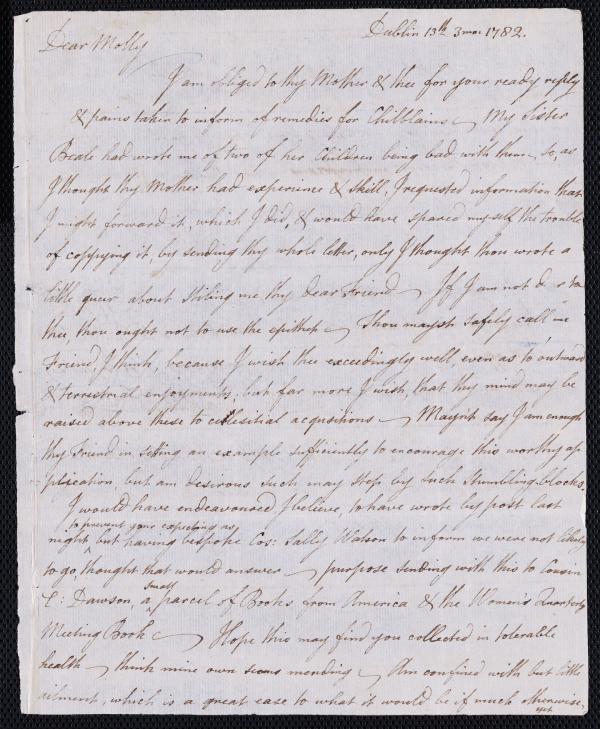 Dublin 13th 3mo: 1782.
Dear Molly
I am obliged to thy Mother & thee for your ready reply
& pains taken to inform of remedies for Chilblains — My Sister
Beale had wrote me of two of her Children being bad with them, so, as
I thought thy Mother had experience & skill, I requested information that
I might forward it, which I did, & would have spared myself the trouble
of coppying it, by sending thy whole letter, only I thought thou wrote a
little quer about stiling me thy dear Friend — If I am not dear to
thee, thou ought not to use the epithet — Thou mayst safely call me
Friend, I think, because I wish thee exceedingly well, even as to outward
& terrestrial enjoyments, but far more I wish, that thy mind may be
raised above these to celestial acqusitions — Maynt say I am enough
thy Friend in setting an example sufficiently to encourage this worthy ap
plication but am desirous such may step by such stumbling blocks.
I would have endeavoured I believe, to have wrote by post last
to prevent your expecting us
night but having bespoke Cos: Sally Watson to inform we were not likely
to go, thought that would answer — purpose sending with this to Cousin
small
C: Dawson, a parcel of Books from America & the Women's Quarterly
Meeting Book — Hope this may find you collected in tolerable
health — think mine own seems mending — Am confined with but little
ailment, which is a great ease to what it would be if much otherwise,
yet